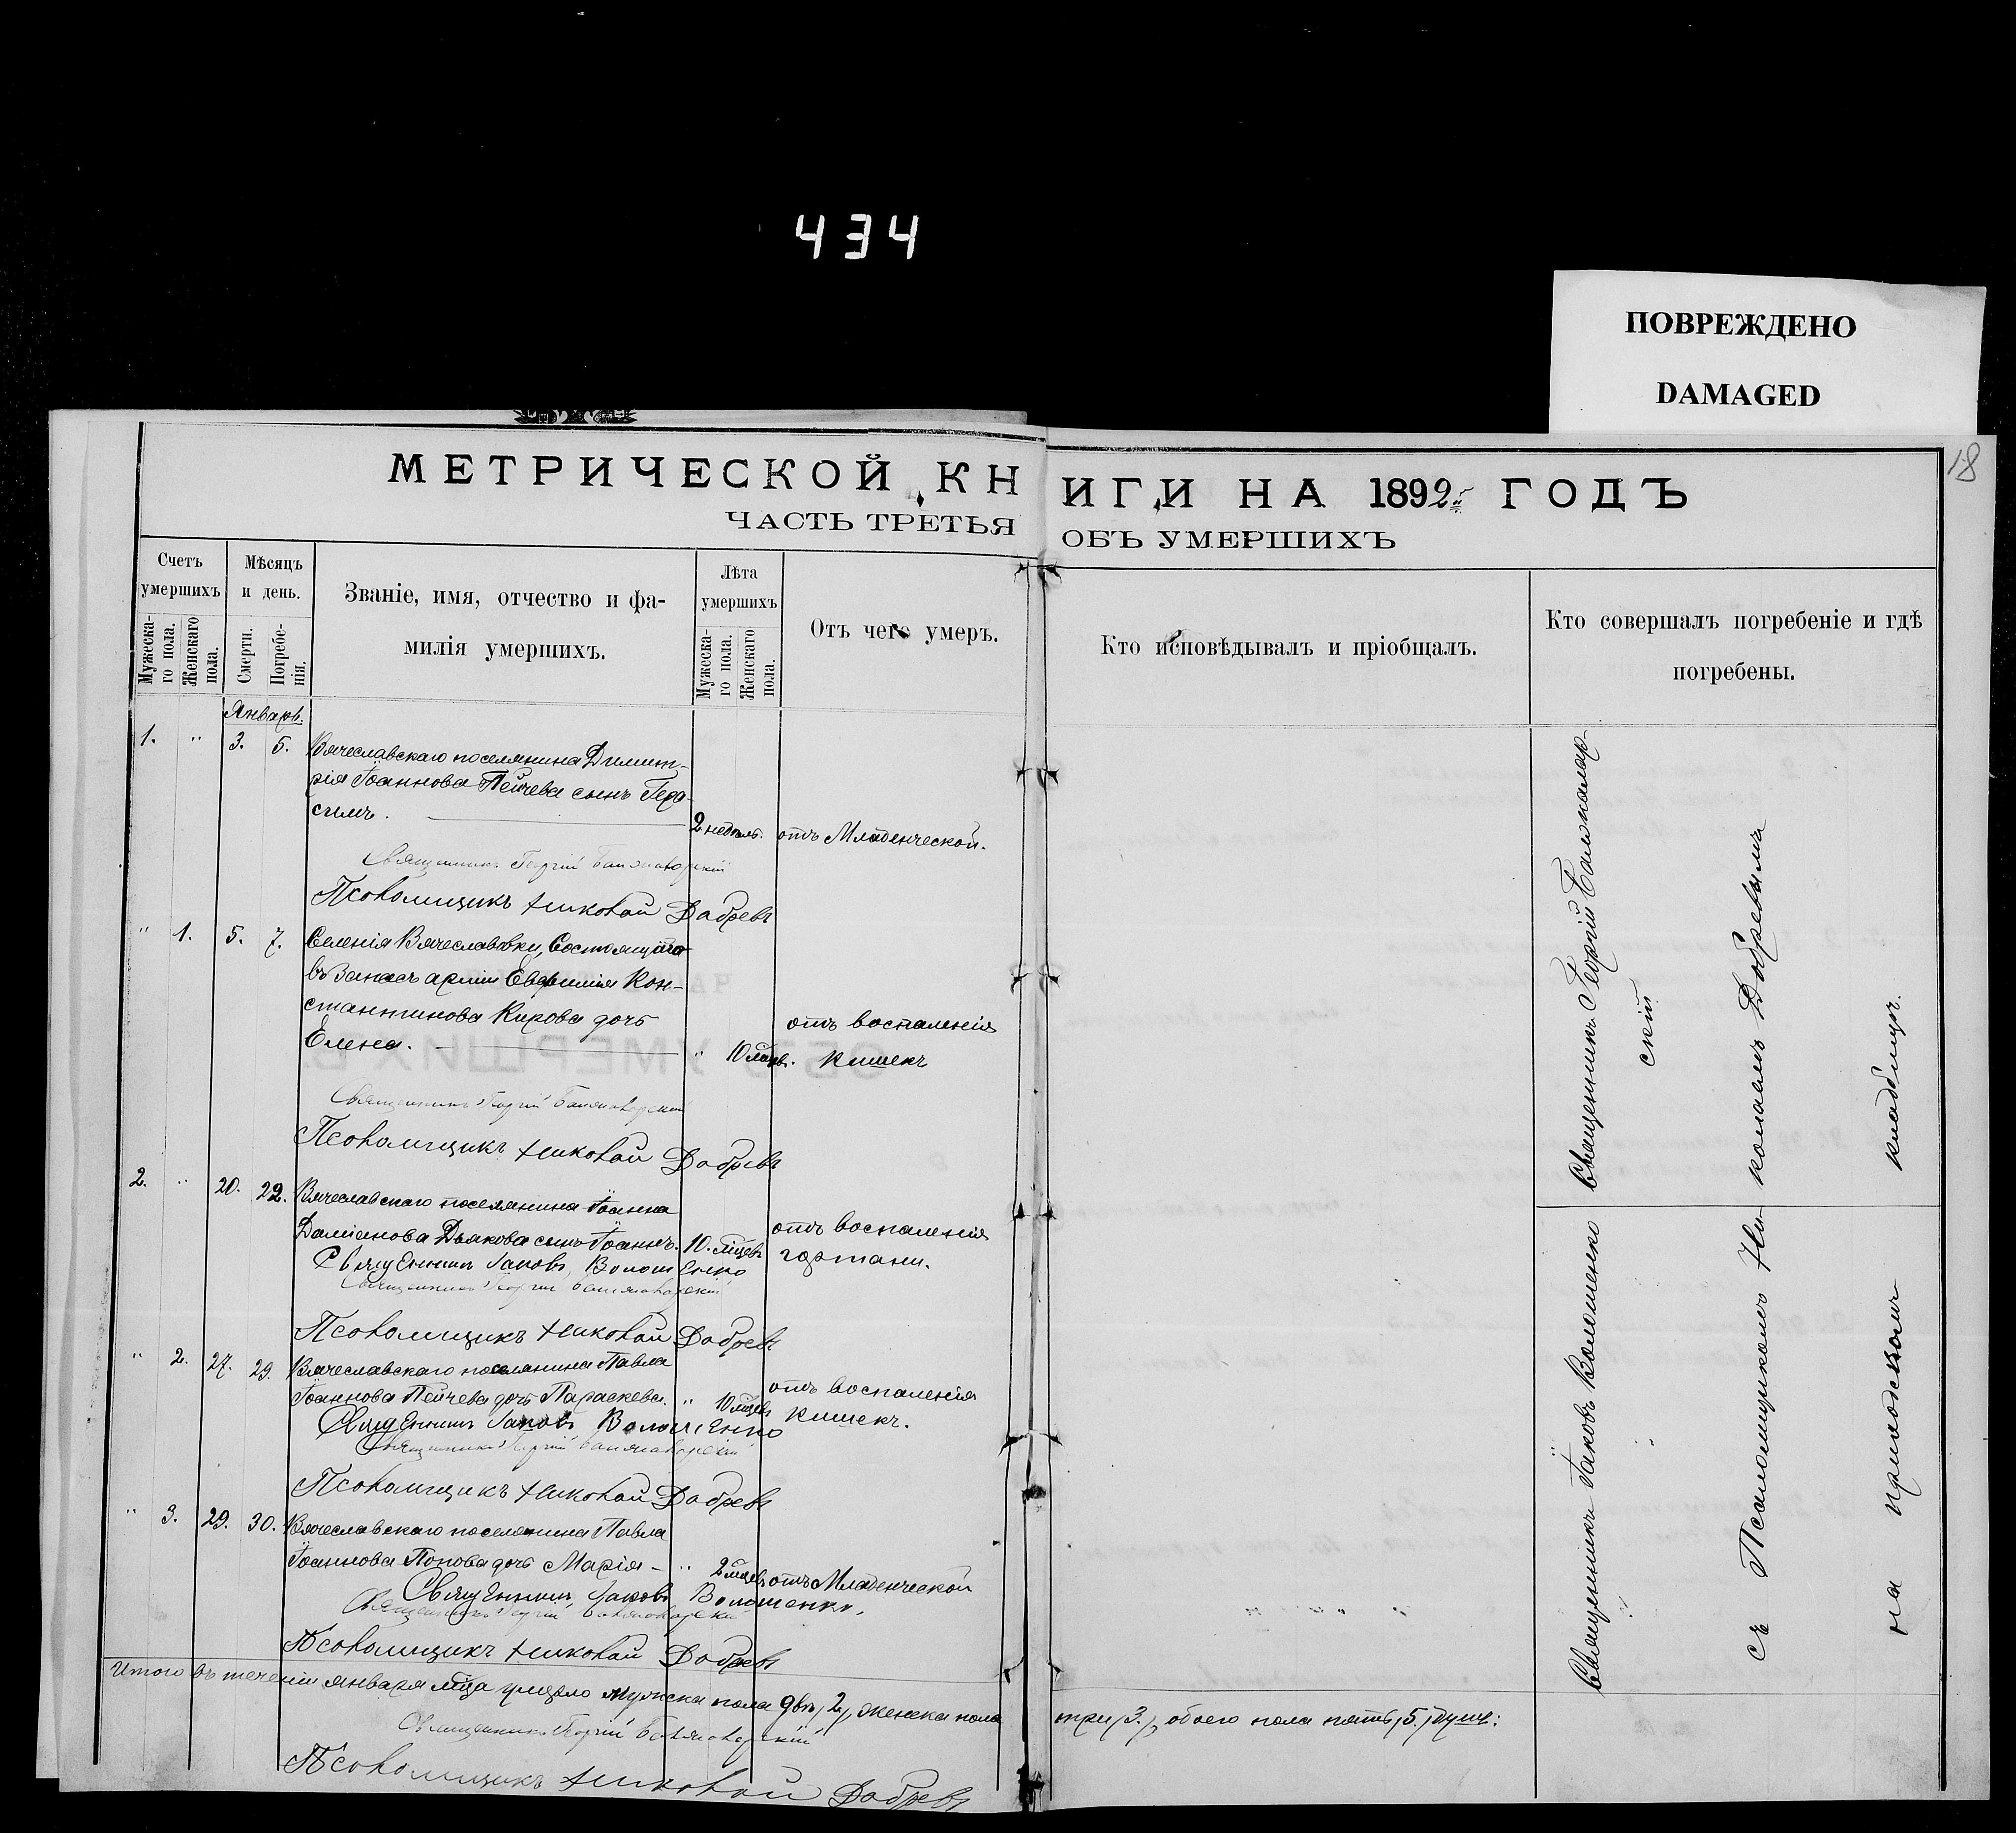 434
ПОВРЕЖДЕНО
DAMAGED
18
МЕТРИЧЕСКОЙ КНИГИ НА 1892й ГОДЪ
ЧАСТЬ ТРЕТЬЯ ОБЪ УМЕРШИХЪ
Счетъ умершихъ
Мужеска-го пола.
Женскаго пола.
Мѣсяцъ и день.
Смерти.
Погребе-нія.
Званіе, имя, отчество и фа-
милія умершихъ.
Лѣта умершихъ
Мужеска-го пола.
Женскаго пола.
Отъ чего умеръ.
Кто исповѣдывалъ и пріобщалъ.
Кто совершалъ погребеніе и гдѣ
погребены.
Январь.
1. " 3. 5. Вячеславскаго поселянина Димит-
рія Іоаннова Пейчева сынъ Гера-
симъ. 2 недѣль. отъ Младенческой.
Священникъ Георгій
Псаломщикъ Николай Добревъ
" 1. 5. 7. Селенія Вячеславовки, Состоящаго
въ Запасѣ арміи Евфимія Кон-
стантинова Кирова дочь
отъ воспаленія
Елена. " 10 мѣсяц. кишекъ
Священникъ Георгій
Псаломщикъ Николай Добревъ
2. " 20. 22. Вячеславскаго поселянина Іоанна
Даміанова Дьякова сынъ Іоаннъ. 10. мѣсяц. отъ воспаленія
гортани.
Священникъ Іаковъ Волошенко
Священникъ Георгій
Псаломщикъ Николай Добревъ
" 2. 27. 29. Вячеславскаго поселянина Павла
Іоаннова Пейчева дочь Параскева. " 10 мѣсяц. отъ воспаленія
кишекъ.
Священникъ Іаковъ Волошенко
Священникъ Георгій
Псаломщикъ Николай Добревъ
" 3. 29. 30. Вячеславскаго поселянина Павла
Іоаннова Попова дочь Марія - " 2 мѣсяц. отъ Младенческой
Священникъ Іаковъ Волошенко.
Священникъ Георгій
Псаломщикъ Николай Добревъ
Итого въ теченіи января м̃ца умерло мужска пола два /2/, женска пола три /3./, обоего пола пять /5./ душъ:
Священникъ Георгій
Псаломщикъ Николай Добревъ
Священникъ Георгій
скій
Священникъ Іаковъ Волошенко
съ Псаломщикомъ Ни-
колаемъ Добревымъ
на приходскомъ кладбищѣ.